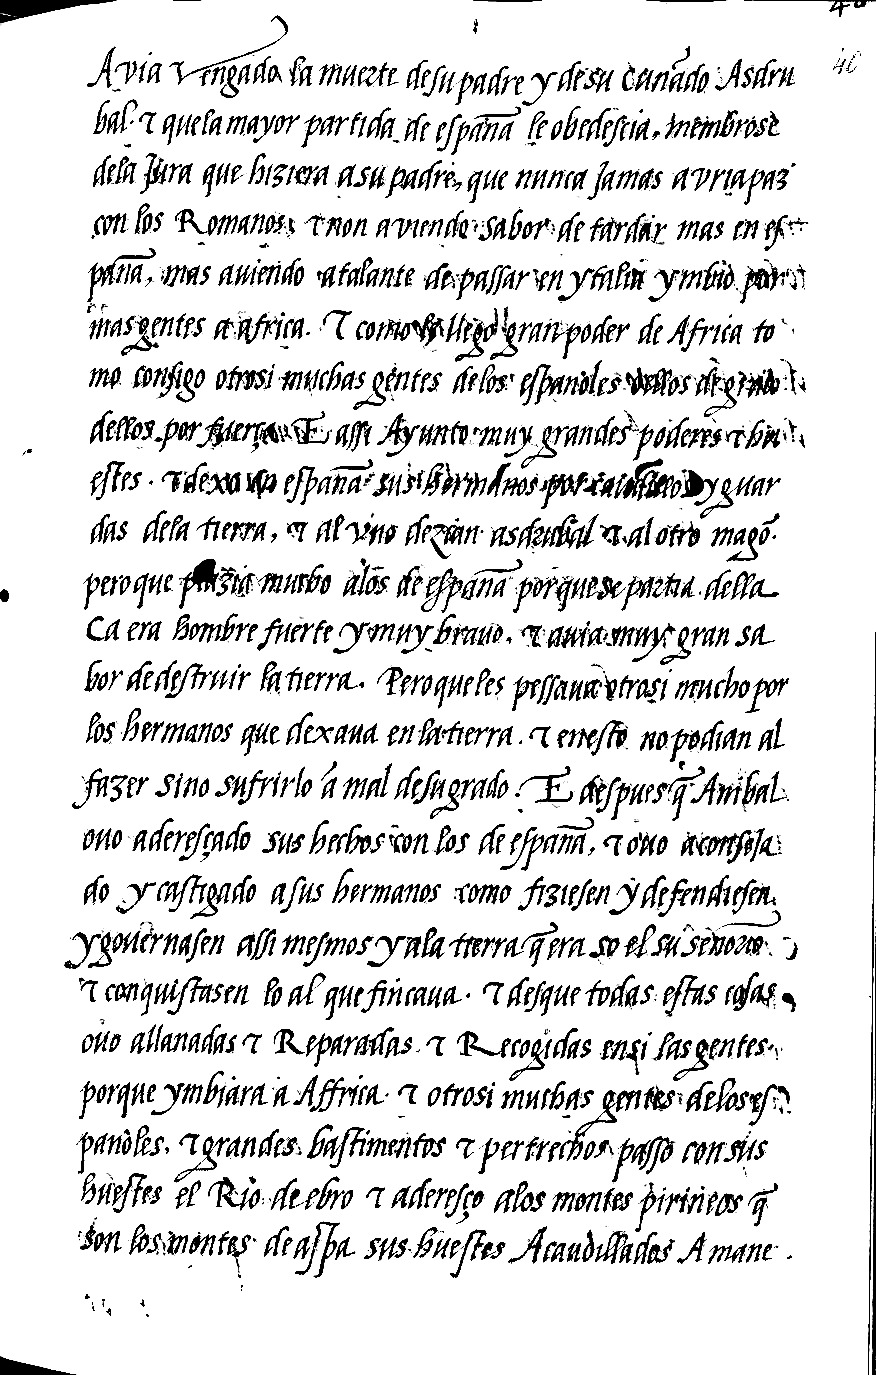 40
Avia vengado la muerte de su padre y de su cunãdo Asdru
bal. τ que la mayor partida de españa le obedescia, membrose
de la Jura que hiziera a su padre, que nunca Jamas avria paz
con los Romanos, τ non aviendo sabor de tardar mas en es
paña, mas aviendo atalante de passar en ytalia ymbio por
mas gentes a africa. τ como le llego gran poder de Africa to
mo consigo otrosi muchas gentes de los españoles dellos de grado
dellos por fuerça. E assi Ayunto muy grandes poderes τ hu
estes. τ dexo en españa sus hermanos por caudillos y guar
das de la tierra, τ al vno dezian asdrubal τ al otro magõ.
pero que plazia mucho a los de españa porque se partia della
Ca era hombre fuerte y muy bravo. τ avia muy gran sa
bor de destruir la tierra. Pero que les pessaua otrosi mucho por
los hermanos que dexaua en la tierra. τ en esto no podian al
fazer sino sufrirlo a mal de su grado. E despues q̃ Anibal
ouo aderesçado sus hechos con los de españa, τ ouo aconseja
do y castigado a sus hermanos como fiziesen y defendiesen
y governasen assi mesmos y a la tierra q̃ era so el su señorio
τ conquistasen lo al que fincaua. τ desque todas estas cosas
ouo allanadas τ Reparadas τ Recogidas en si las gentes
porque ymbiara a Affrica τ otrosi muchas gentes de los es
pañoles, τ grandes bastimentos τ pertrechos passo con sus
huestes el Rio de ebro τ aderesço a los montes pirineos q̃
son los montes de aspa sus huestes Acaudilladas A mane